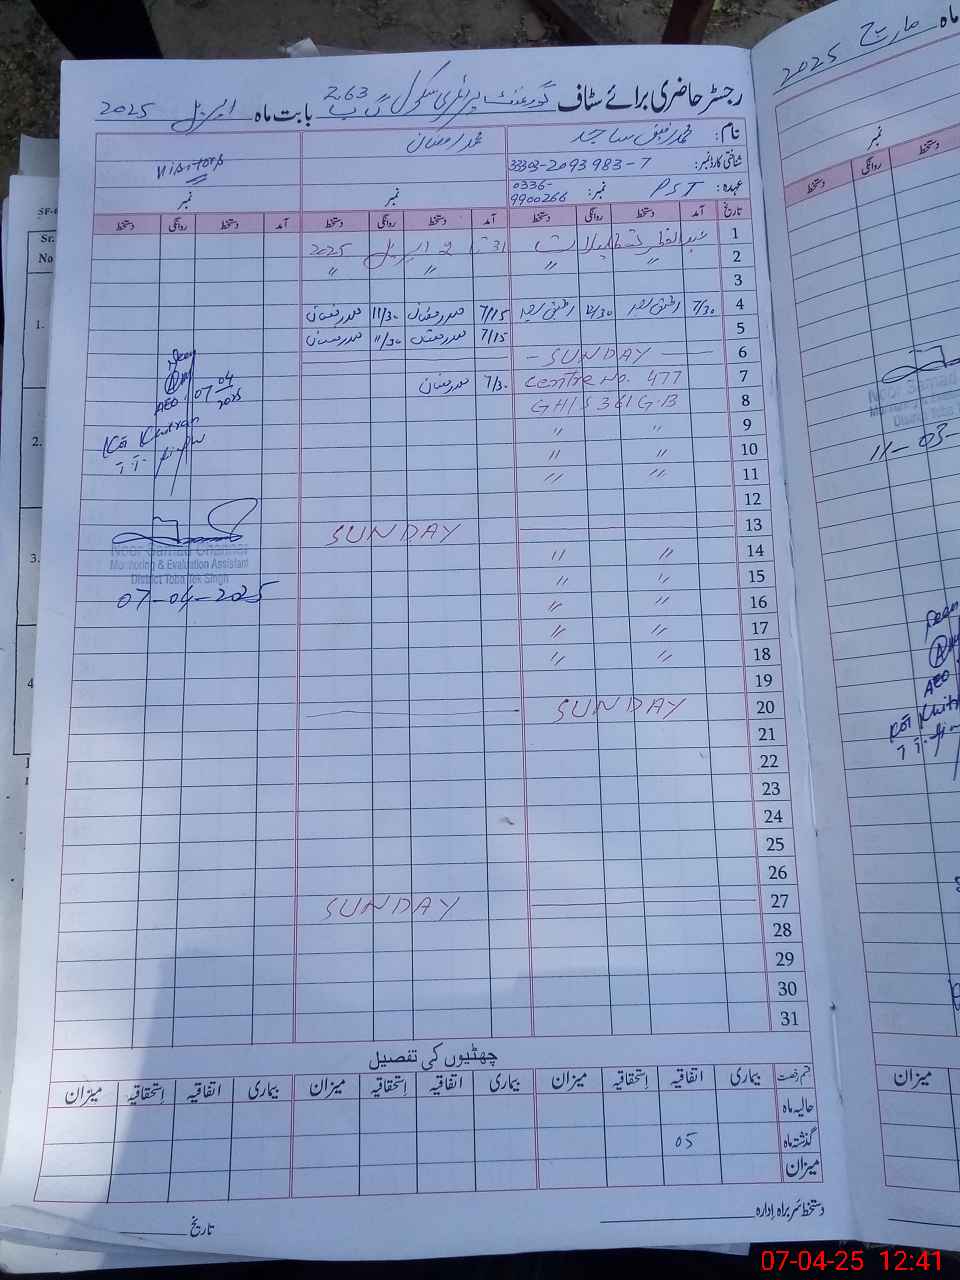 رجسٹر حاضری برائے سٹاف گورنمنٹ پرائمری سکول 263 گ ب بابت ماہ اپریل 2025
نام: محمد رفیق ساجد محمد رمضان
شناختی کارڈ نمبر: 33303-2093983-7 Visitors
عہدہ: PST نمبر: 0336-9900266 نمبر نمبر
تاریخ آمد دستخط روانگی دستخط آمد دستخط روانگی دستخط آمد دستخط روانگی دستخط
1 عید الفطر تعطیلات 31 تا 2 اپریل 2025
2 〃 〃 〃 〃
3
4 7/30 12/30 7/15 محمد رمضان 11/30 محمد رمضان
5 7/15 محمد رمضان 11/30 محمد رمضان
6 - SUNDAY -
7 Centre No. 477 7/30 محمد رمضان
8 GHS 361 G.B
9 〃 〃
10 〃 〃
11 〃 〃
12
13 SUNDAY
14 〃 〃
15 〃 〃
16 〃 〃
17 〃 〃
18 〃 〃
19
20 SUNDAY
21
22
23
24
25
26
27 SUNDAY
28
29
30
31
Seen
AEO
07-04-2025
T.T. Singh
Noor Samad Channer
Monitoring & Evaluation Assistant
District Toba Tek Singh
07-04-2025
چھٹیوں کی تفصیل
قسم رخصت بیماری اتفاقیہ استحقاقیہ میزان بیماری اتفاقیہ استحقاقیہ میزان بیماری اتفاقیہ استحقاقیہ میزان
حالیہ ماہ
گذشتہ ماہ 05
میزان
دستخط سربراہ ادارہ تاریخ
ماہ مارچ 2025
نمبر
دستخط روانگی دستخط
Noor Samad
Monitoring & Evaluation
District Toba
11-03-
Seen
AEO
میزان
Sr.
No
1.
2.
3.
4
07-04-25 12:41